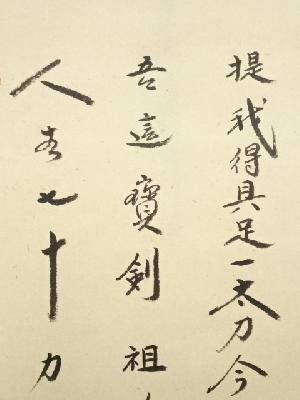 人生七十力
吾這寶剣祖
提我得具足一太刀今